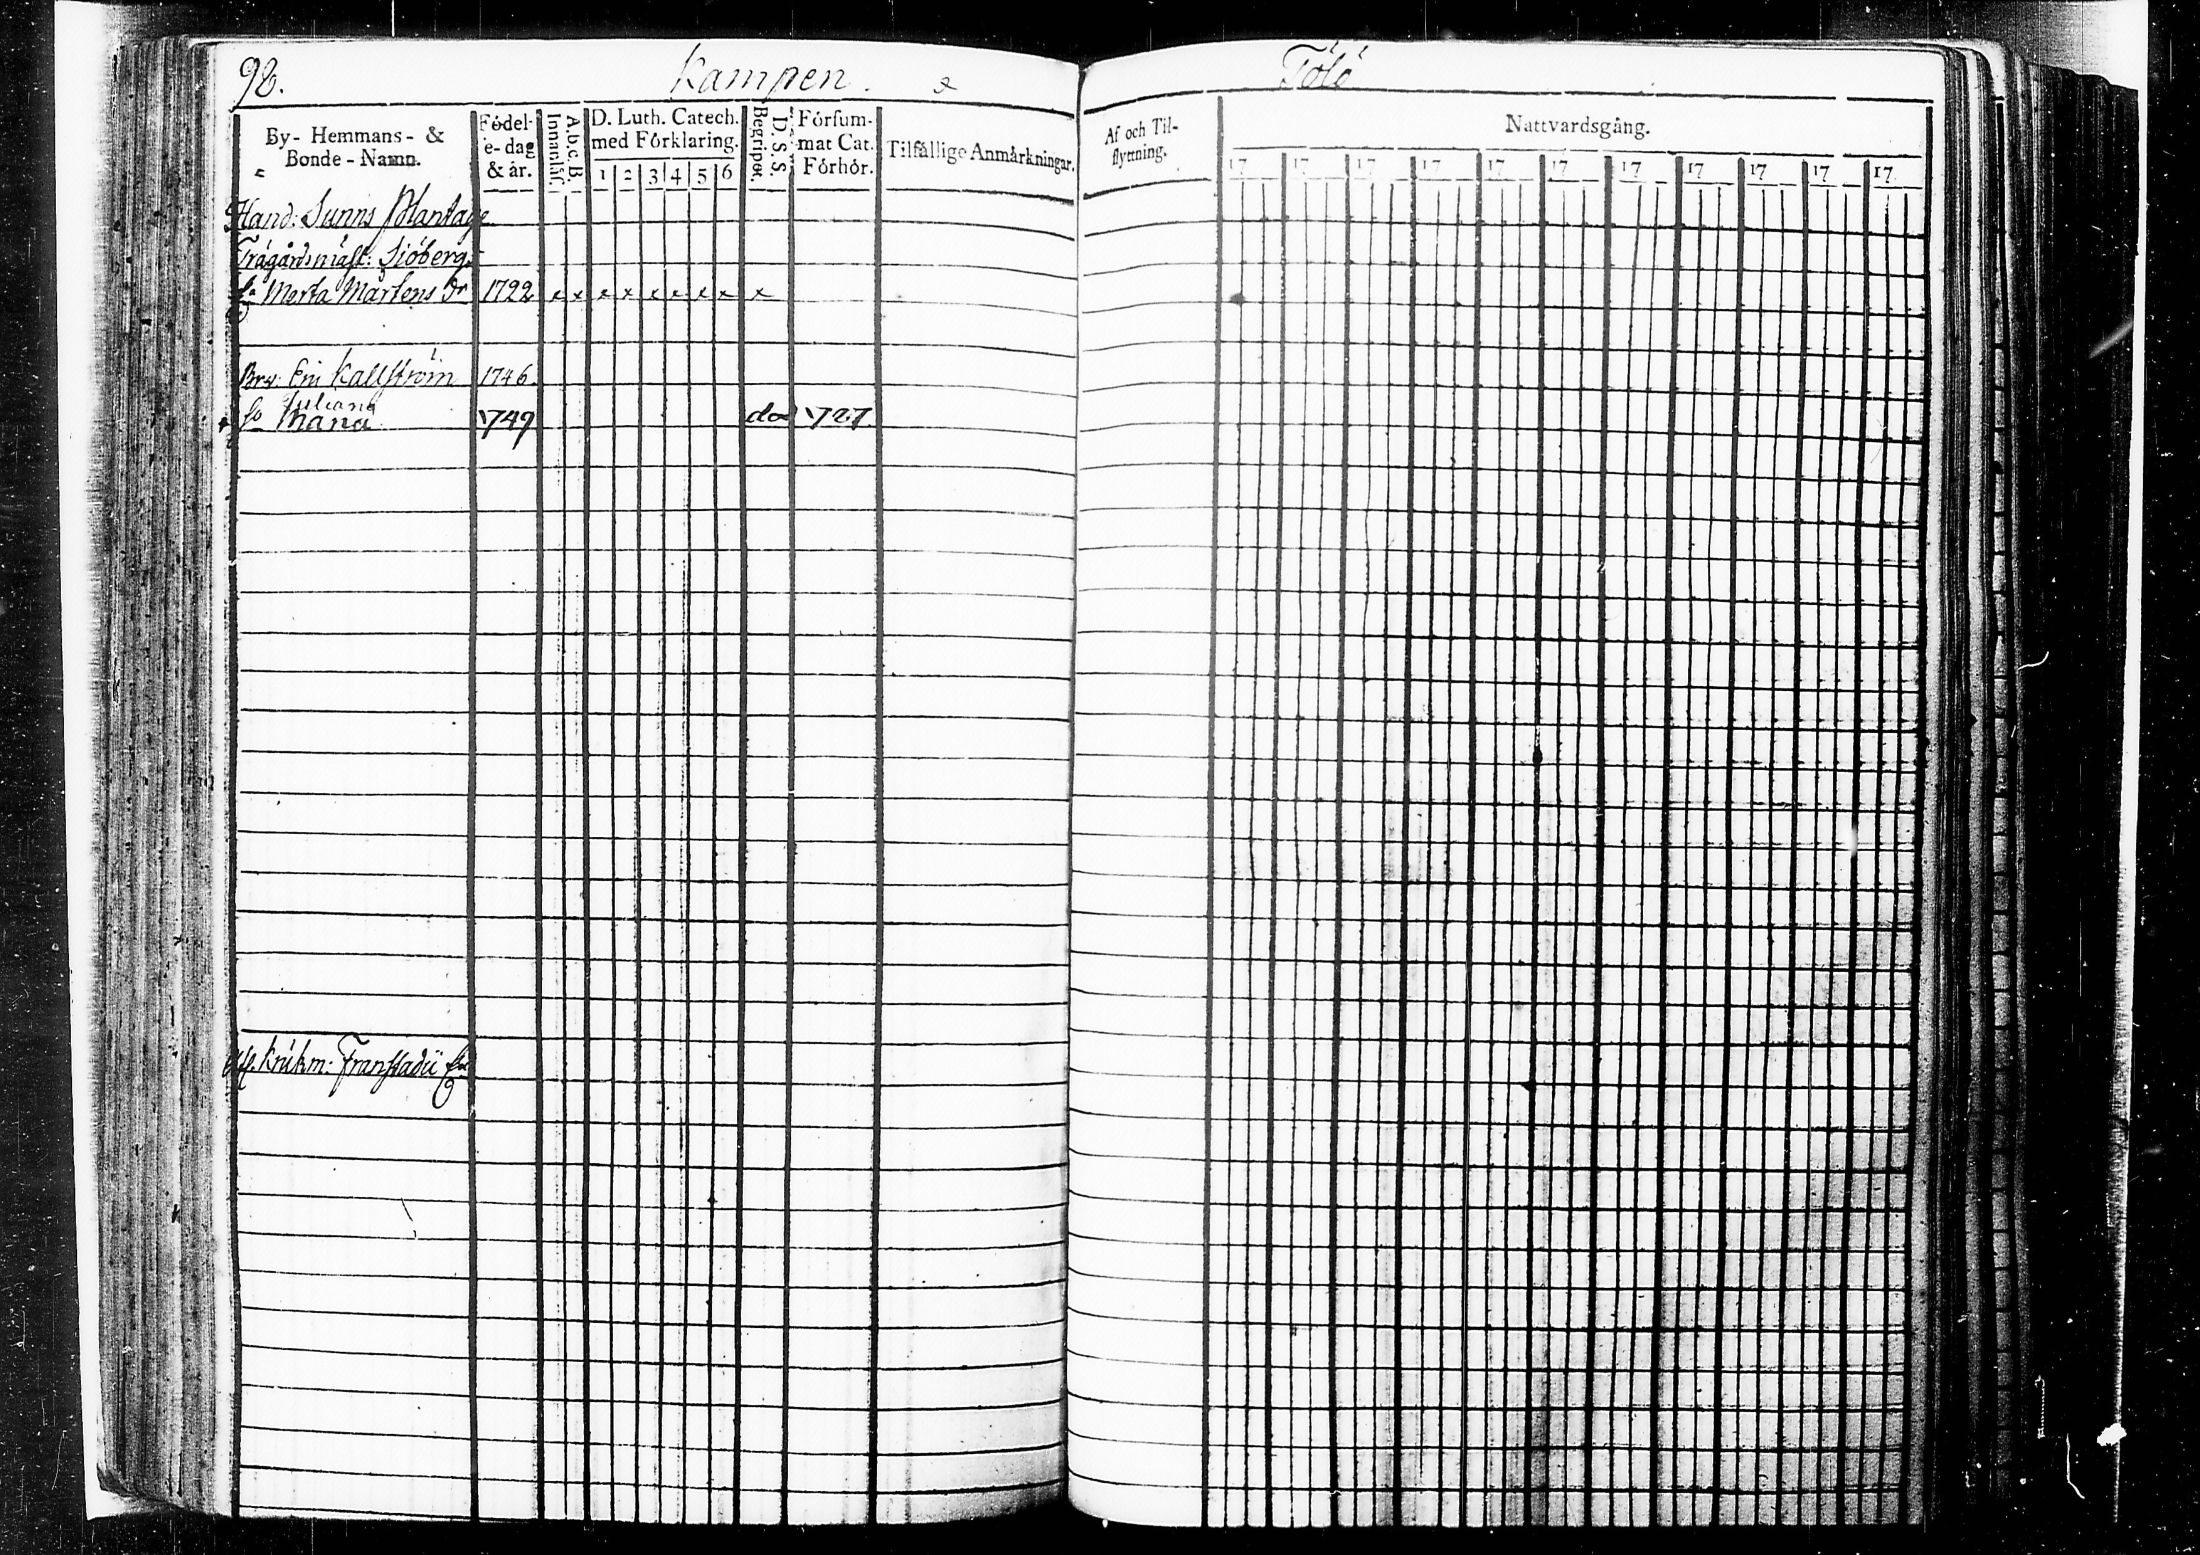 98.
Kampen.
Tölö
By- Hemmans- &
Bonde-Namn.
Födel-
se-dag
& år.
A.b.c.B.
Innanläs.
D. Luth. Catech.
med Förklaring.
1 2 3 4 5 6
D. S. S.
Begriper.
Försum-
mat Cat.
Förhör.
Tilfällige Anmärkningar.
Af och Til-
flyttning.
Nattvardsgång.
17 17 17 17 17 17 17 17 17 17 17
Hand: Sunns Plantage
Trägårdsmäst: Siöberg
Merta Mårtens Dr 1722 x x x x x x x x x
Eric Kallström 1746.
Juliana
Maria 1749 död
Krükm: Franstadii